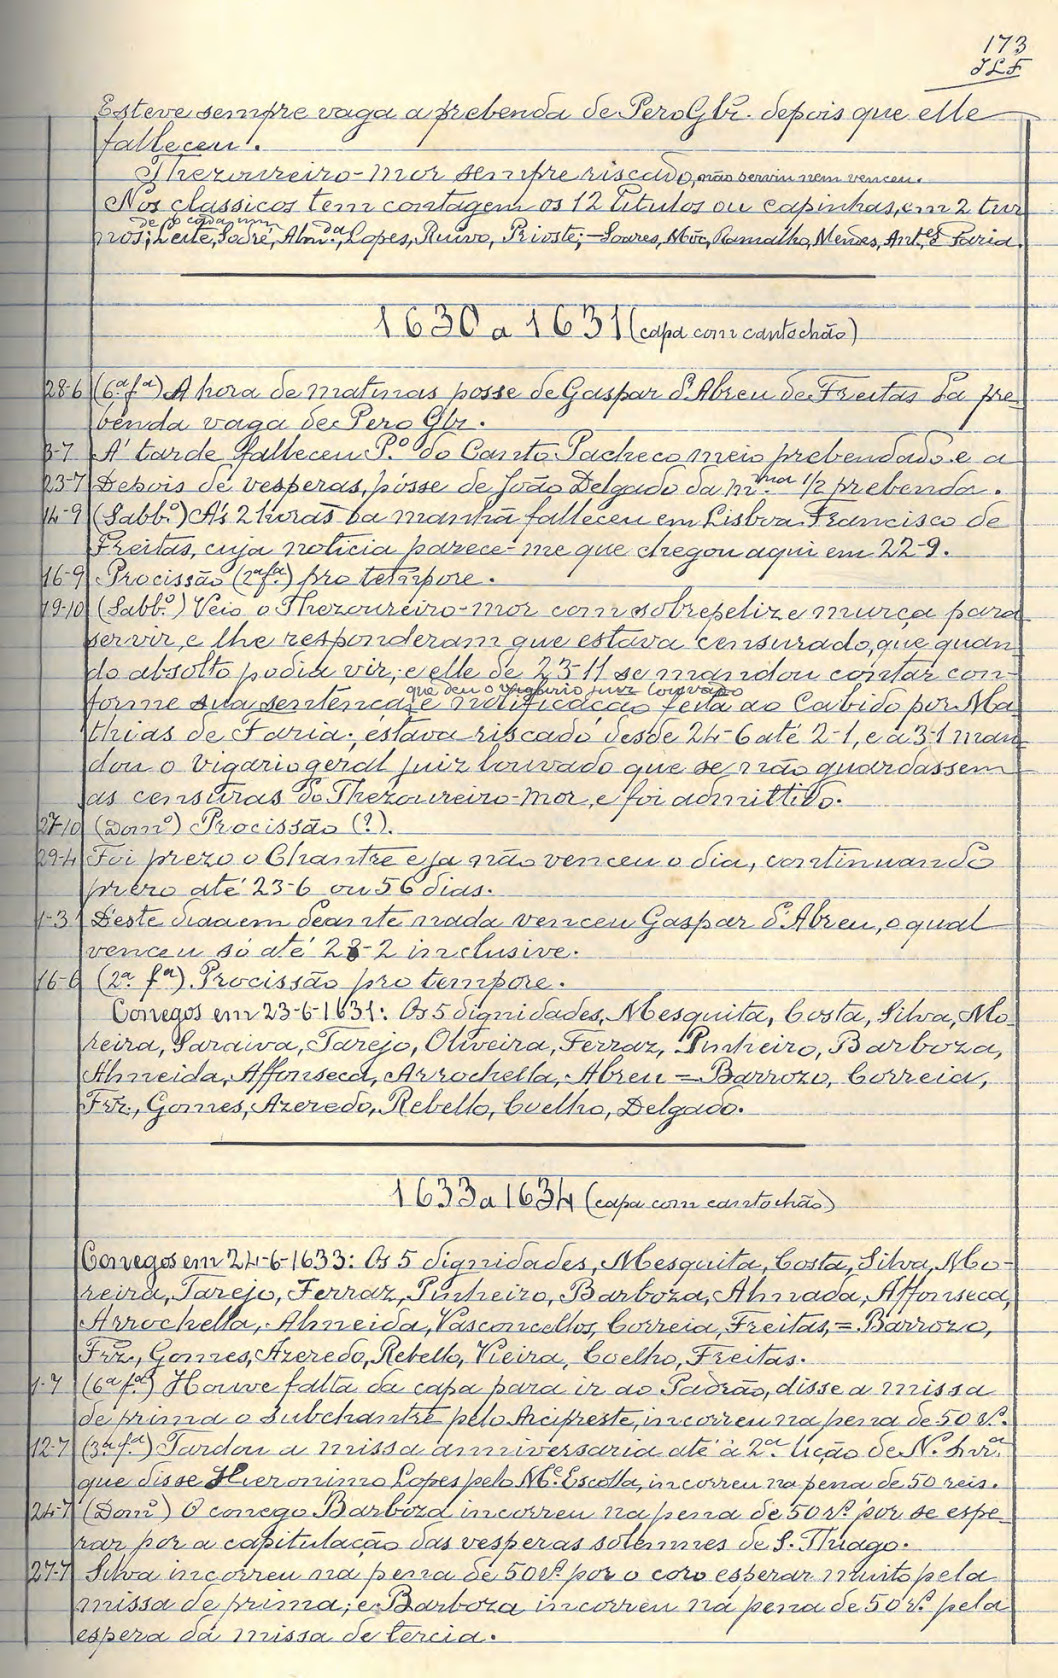 173
JLF
Esteve sempre vaga a prebenda de Pero Glz. depois que elle
falleceu.
Thezoureiro-mor sempre riscado, não serviu nem venceu.
Nos classicos tem contagem os 12 titulos ou capinhas, em 2 tur
de 6 cada um
nos; Leite, Sodré, Almda., Lopes, Ruivo, Prioste; - Soares, Môr, Ramalho, Mendes, Antes. Faria.
1630 a 1631 (capa com cantochão)
28-6 (6ª fª) A hora de matinas posse de Gaspar d'Abreu de Freitas da pre-
benda vaga de Pero Glz.
3-7 A' tarde falleceu P.º do Canto Pacheco meio prebendado e a
23-7 Depois de vesperas, pósse de João Delgado da m.ma 1/2 prebenda.
14-9 (Sabb.º) A's 2 horas da manhã falleceu em Lisboa Francisco de
Freitas, cuja noticia parece-me que chegou aqui em 22-9.
16-9 Procissão (2ª fª.) pro tempore.
19-10 (Sabb.º) Veio o Thezoureiro-mor com sobrepeliz e murça para
servir, e lhe responderam que estava censurado, que quan-
do absolto podia vir; e elle de 23-11 se mandou contar con-
que deu o vigario juiz louvado
forme sua sentença, e notificação feita ao Cabido por Ma-
thias de Faria; estava riscado desde 24-6 até 2-1, e a 3-1 man-
dou o vigario geral juiz louvado que se não guardassem
as censuras do Thezoureiro-mor, e foi admittido.
27-10 (Dom.º) Procissão (?).
29-4 Foi prezo o Chantre e ja não venceu o dia, continuando
prezo até 23-6 ou 56 dias.
1-3 D'este dia em deante nada venceu Gaspar d'Abreu, o qual
venceu só até 28-2 inclusive.
16-6 (2ª. fª). Procissão pro tempore.
Conegos em 23-6-1631: Os 5 dignidades, Mesquita, Costa, Silva, Mo-
reira, Saraiva, Tarejo, Oliveira, Ferraz, Pinheiro, Barboza,
Almeida, Affonseca, Arrochella, Abreu = Barrozo, Correia,
Frz., Gomes, Azeredo, Rebello, Coelho, Delgado.
1633 a 1634 (capa com cantochão)
Conegos em 24-6-1633: Os 5 dignidades, Mesquita, Costa, Silva, Mo-
reira, Tarejo, Ferraz, Pinheiro, Barboza, Almada, Affonseca,
Arrochella, Almeida, Vasconcellos, Correia, Freitas, = Barrozo,
Frz., Gomes, Azeredo, Rebello, Vieira, Coelho, Freitas.
1-7 (6ª fª) Houve falta da capa para ir ao Padrão, disse a missa
de prima o subchantre pelo Arcipreste, incorreu na pena de 50 rs.
12-7 (3ª. fª.) Tardou a missa anniversaria até à 2ª lição de N. Snrª
que disse Hieronimo Lopes pelo Me. Escolla, incorreu na pena de 50 reis.
24-7 (Domº) O conego Barboza incorreu na pena de 50 rs. por se espe-
rar por a capitulação das vesperas solemnes de S. Thiago.
27-7 Silva incorreu na pena de 50 rs. por o coro esperar muito pela
missa de prima; e Barboza incorreu na pena de 50 rs. pela
espera da missa de tercia.